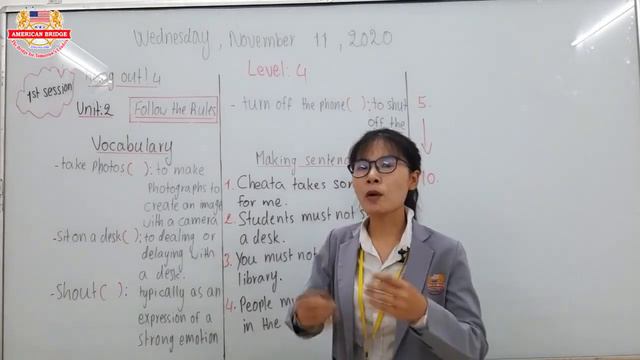 AMERICAN BRIDGE
Wednesday, November 11, 2020
1st session
out! 4
Level: 4
Unit: 2
Follow the Rules
Vocabulary
- take photos ( ): to make
photographs to
create an image
with a camera
- sit on a desk ( ): to dealing or
delaying with
a desk.
- Shout ( ): typically as an
expression of a
strong emotion
- turn off the phone ( ): to shut
off the
Making
1. Cheata takes
for me.
2. Students must not
a desk.
3. You must not
library.
4. People
in the
5.
10.